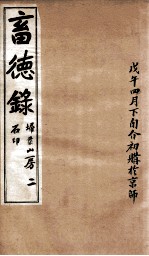 戊午四月下旬介初購於京師
畜德錄
埽葉山房 二
石印